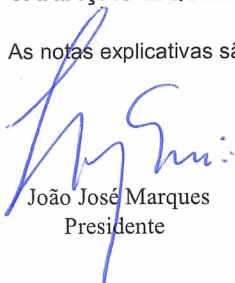 As notas explicativas sã
João José Marques
Presidente